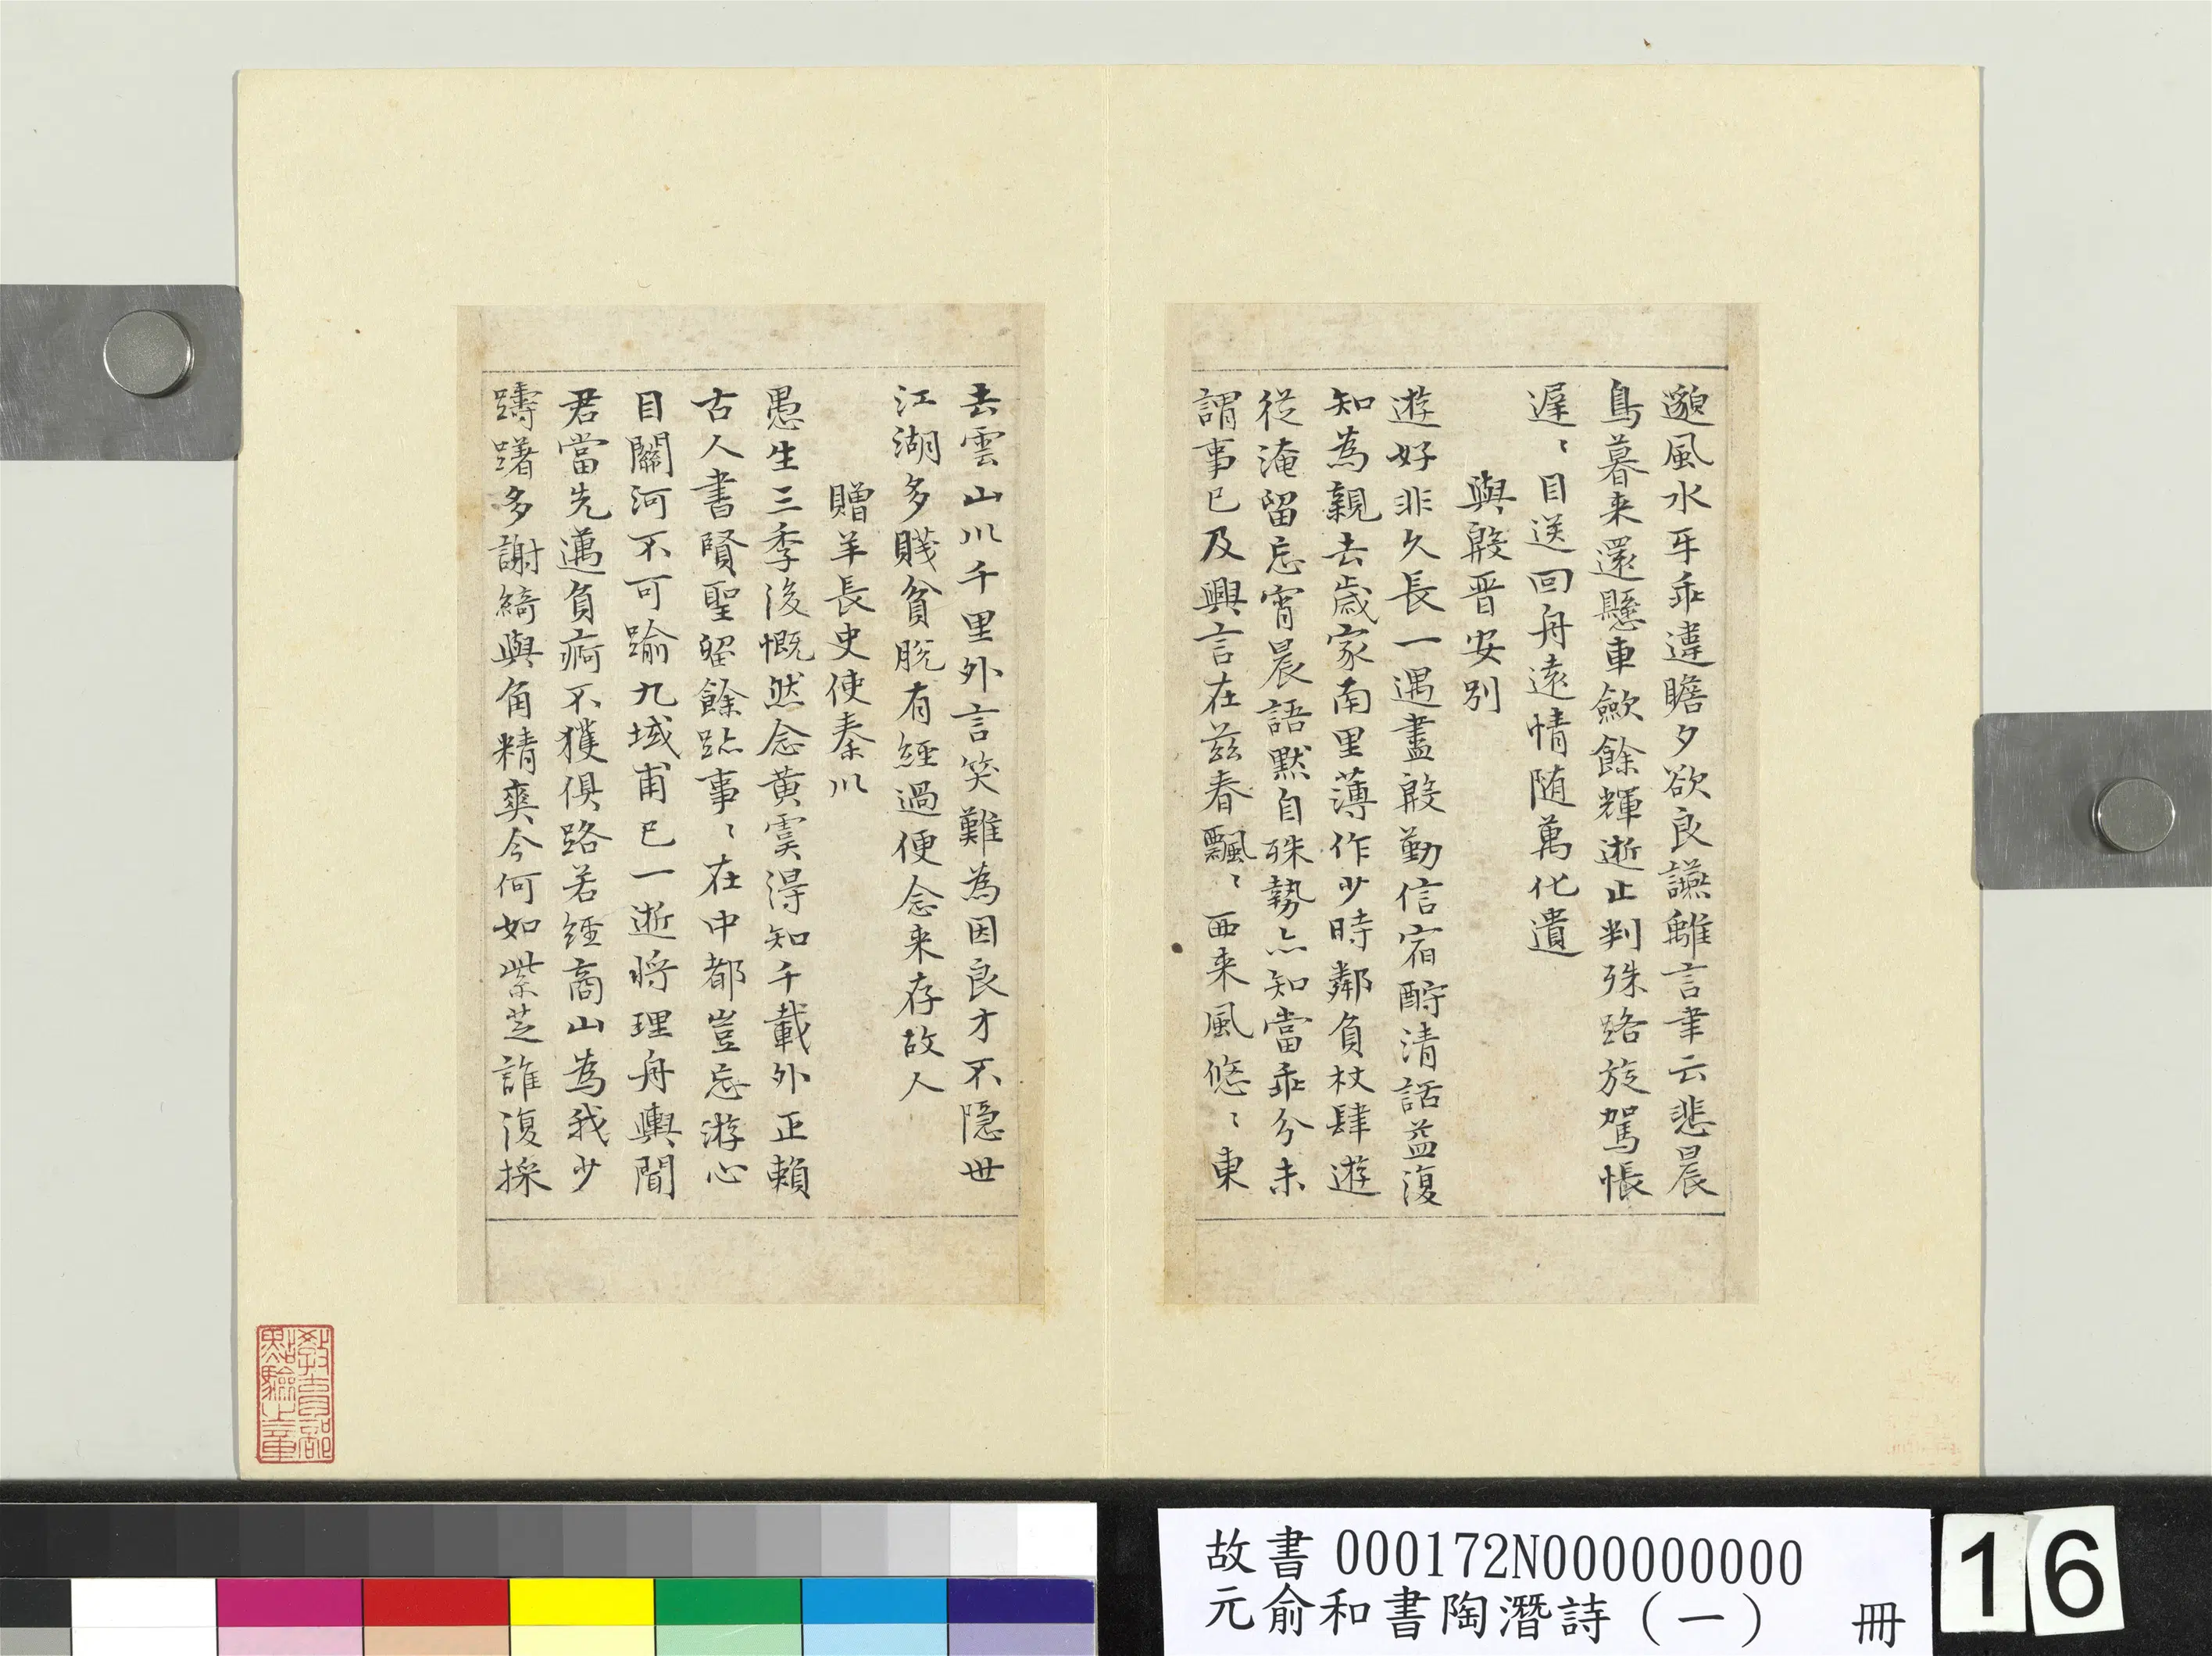 邈風水互乖違瞻夕欲良讌離言聿云悲晨
鳥暮来還懸車歛餘輝逝止判殊路旋駕悵
遲〻目送回舟遠情随萬化遺
與殷晋安別
遊好非久長一遇盡殷勤信宿酧清話益復
知為親去歲家南里薄作少時鄰負杖肆遊
從淹留忘宵晨語默自殊勢亦知當乖分未
謂事已及興言在兹春飄〻西来風悠〻東
去雲山川千里外言笑難為因良才不隱世
江湖多賤貧脫有經過便念来存故人
贈羊長史使秦川
愚生三季後慨然念黃虞得知千載外正賴
古人書賢聖留餘跡事〻在中都豈忘游心
目關河不可踰九域甫已一逝將理舟輿聞
君當先邁負痾不獲俱路若經商山為我少
躊躇多謝綺與角精爽今何如紫芝誰復採
教育部
點驗之章
故書000172N000000000
元俞和書陶潛詩（一） 冊
16